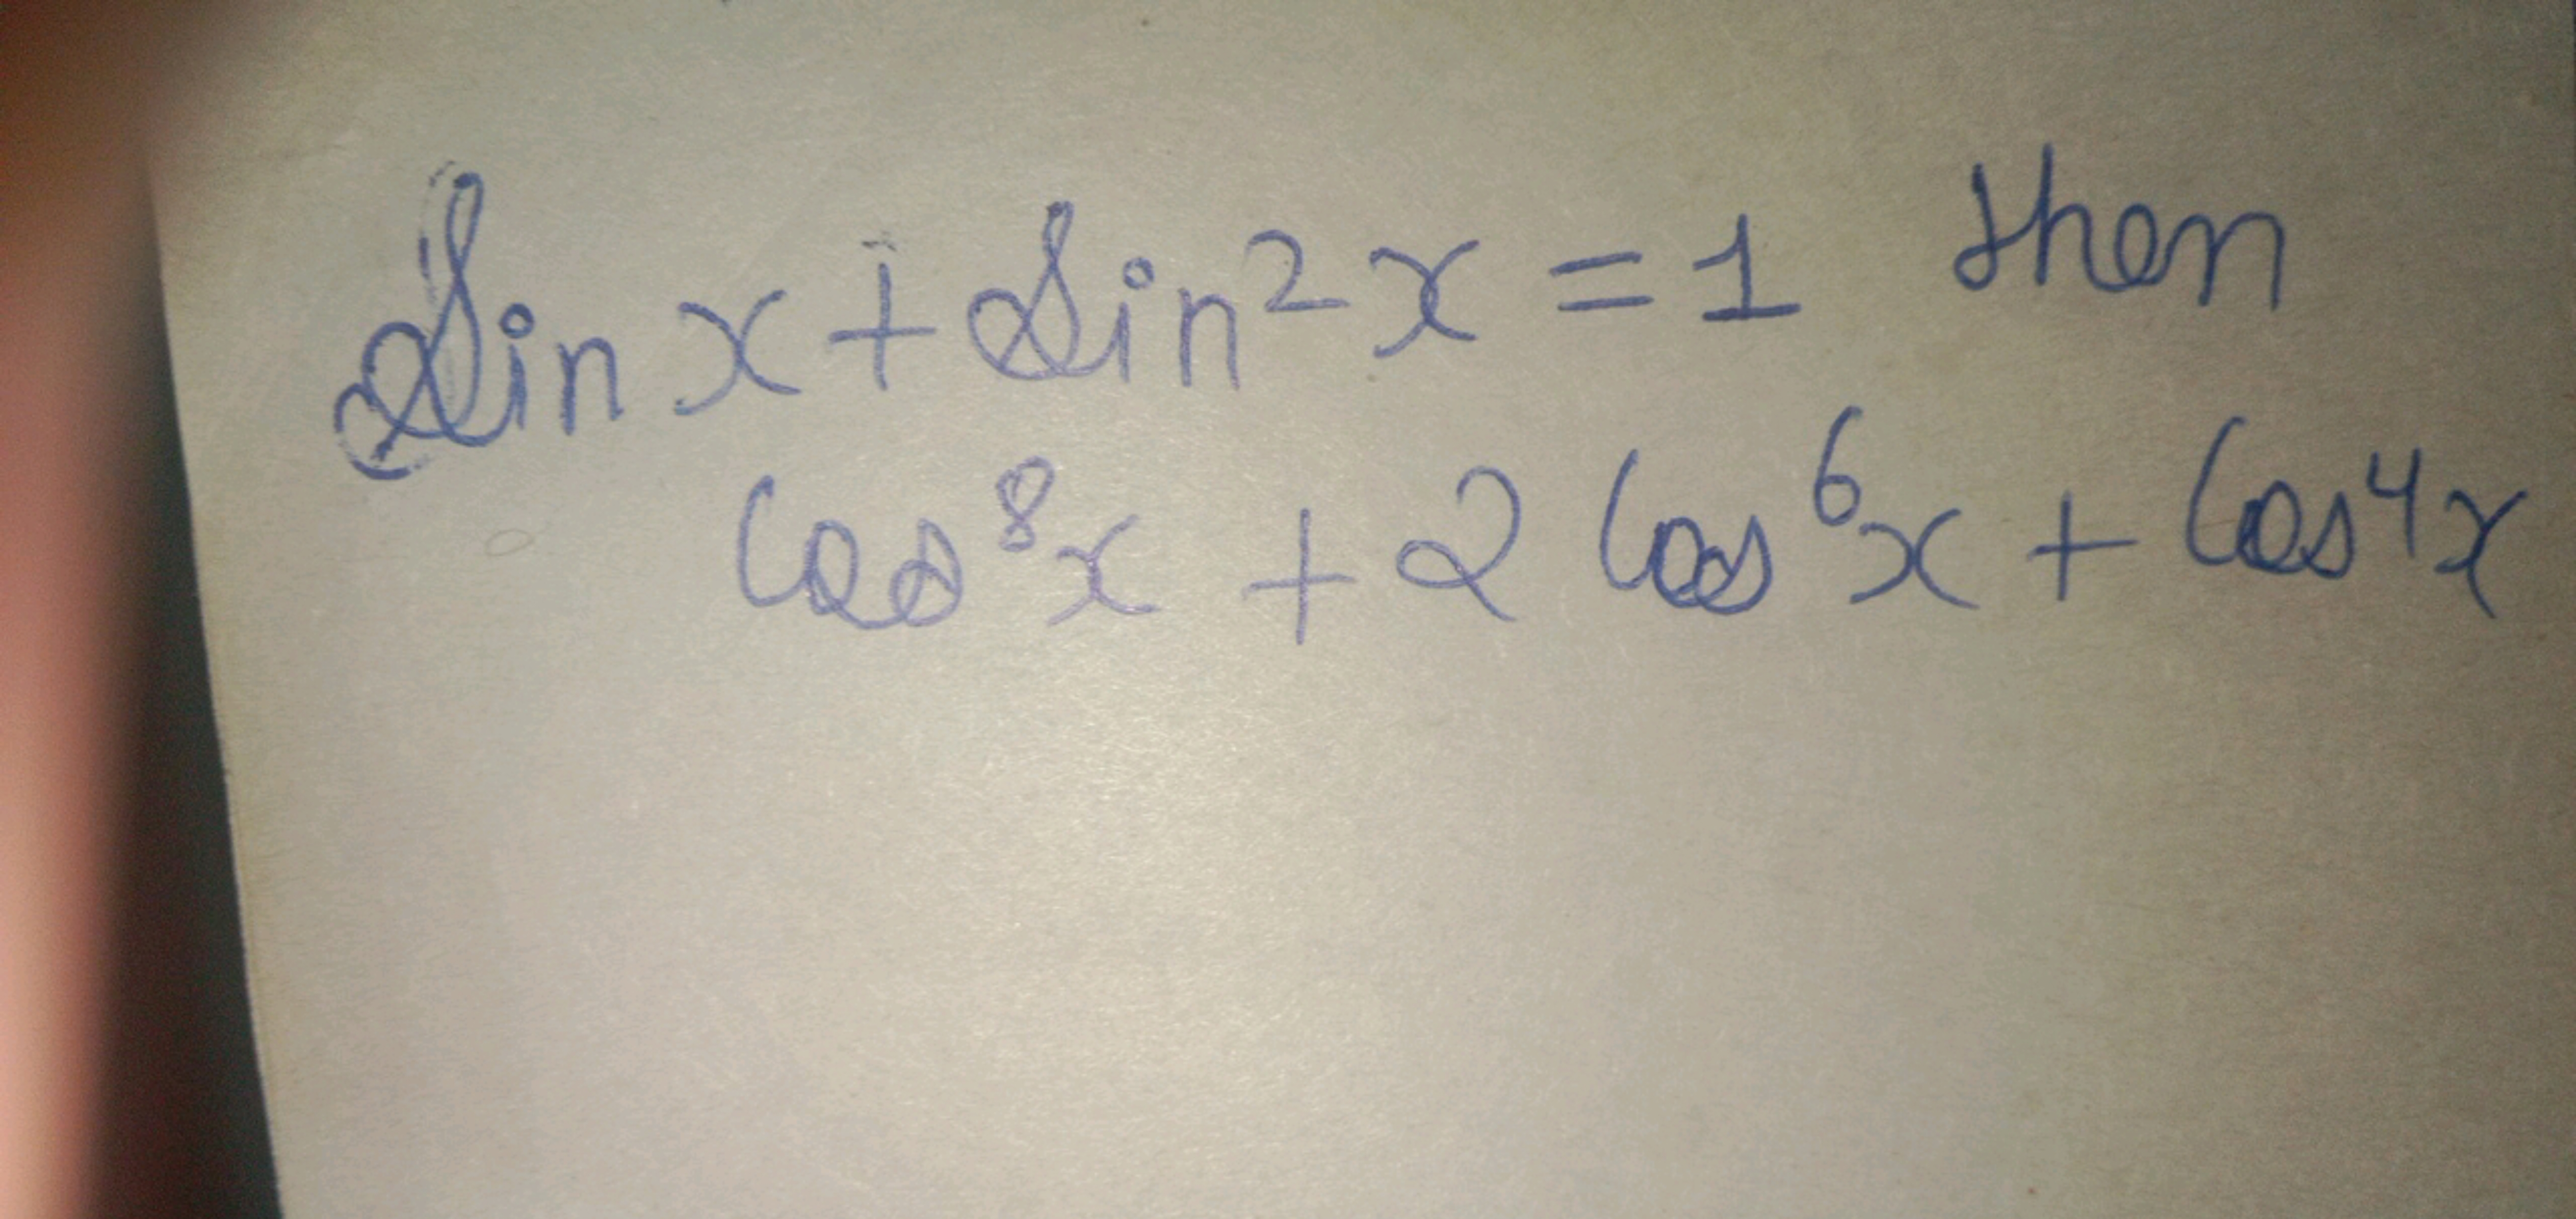 Sin x + Sin² x = 1 then
Cos⁸x + 2 Cos⁶x + Cos⁴x